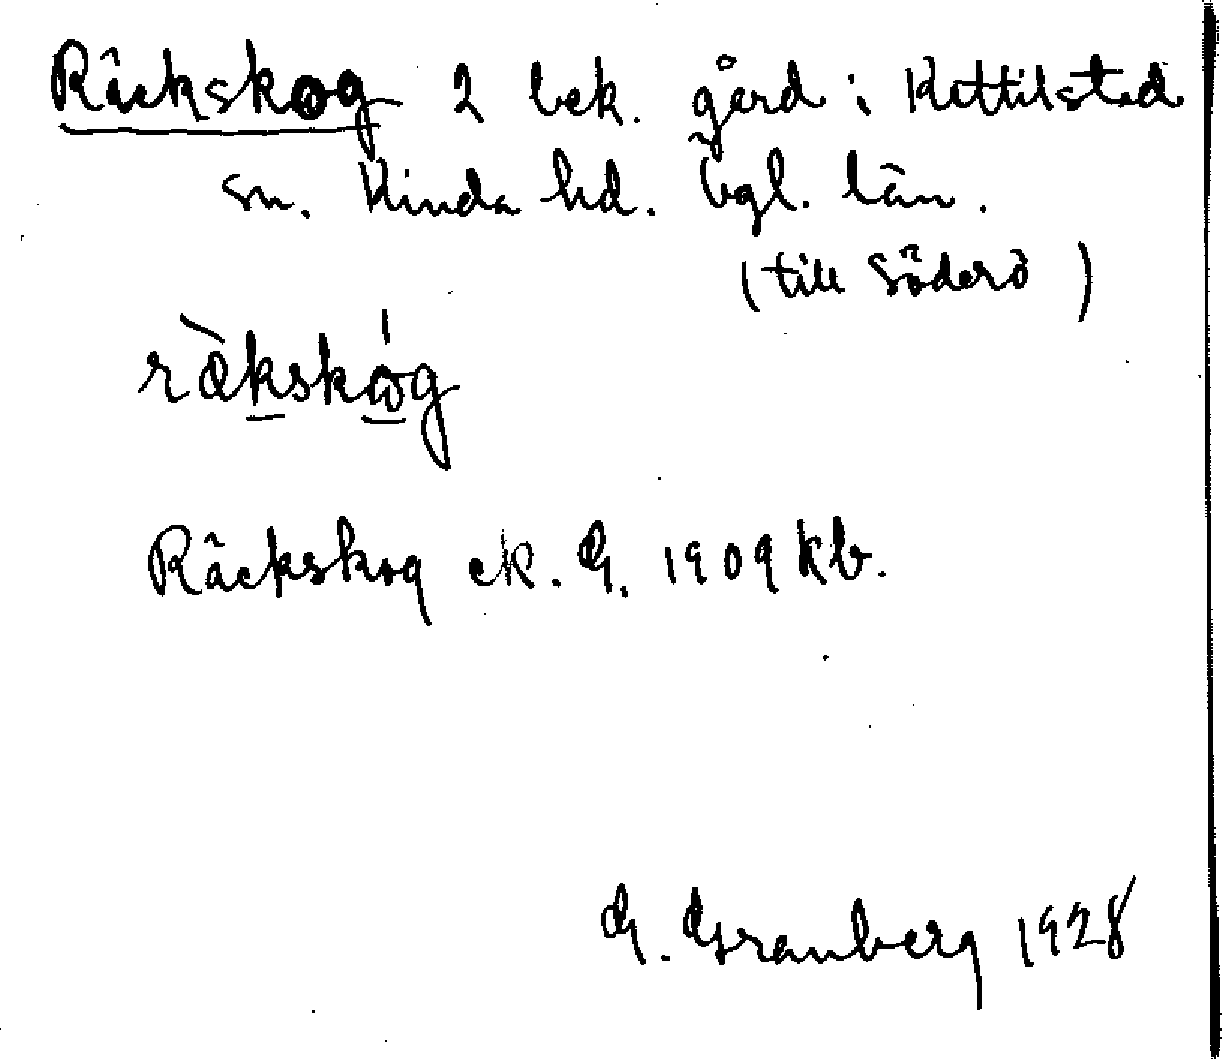 Räckskog 2 bek. gård i Kettilstad
sn. Kinda hd. Ögl. län.
(till Söderö)
räkskóg
Räckskog ek. G. 1909 kb.
G. Granberg 1928